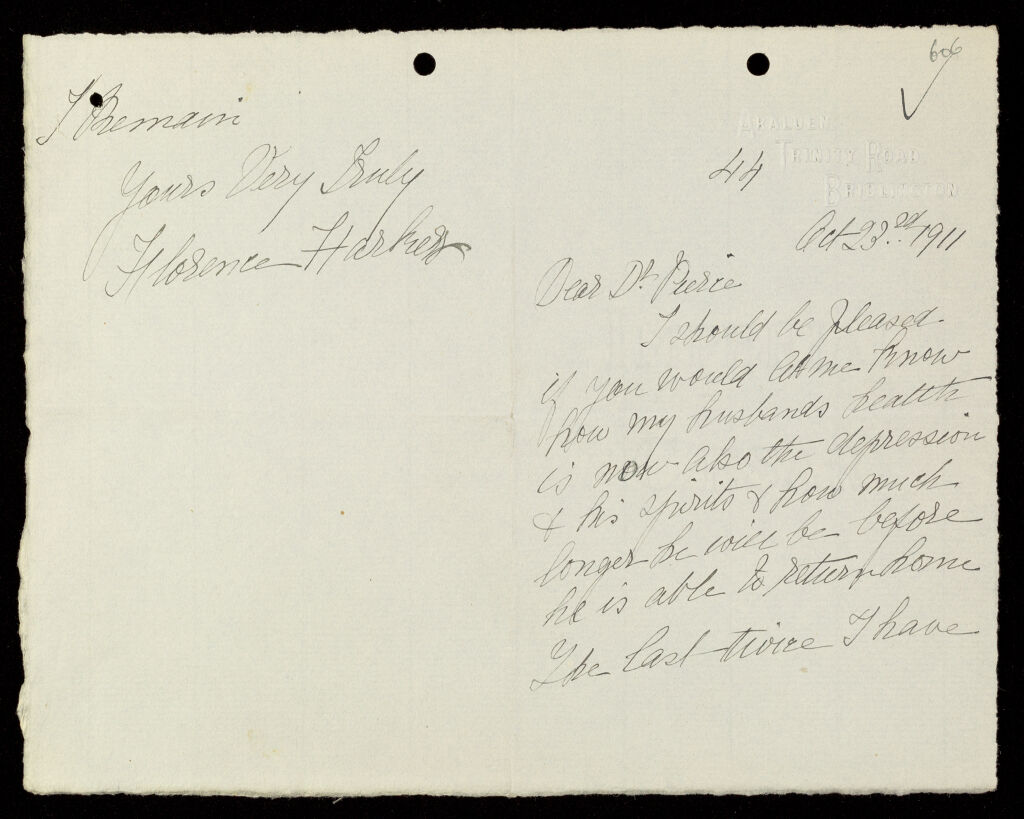 606
ARALUEN,
TRINITY ROAD,
BRIDLINGTON
44
Oct 23rd 1911
Dear Dr Pierce
I should be pleased
if you would let me know
how my husbands health
is now also the depression
& his spirits & how much
longer he will be before
he is able to return home
The last twice I have
I Remain
Yours Very Truly
Florence Harker